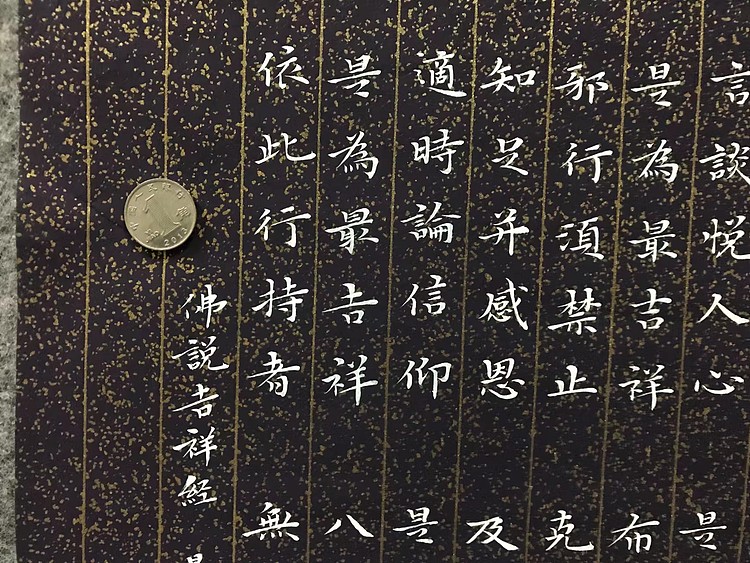 言談悅人心 是
是為最吉祥 布
邪行須禁止 克
知足并感恩 及
適時論信仰 是
是為最吉祥 八
依此行持者 無
佛説吉祥經